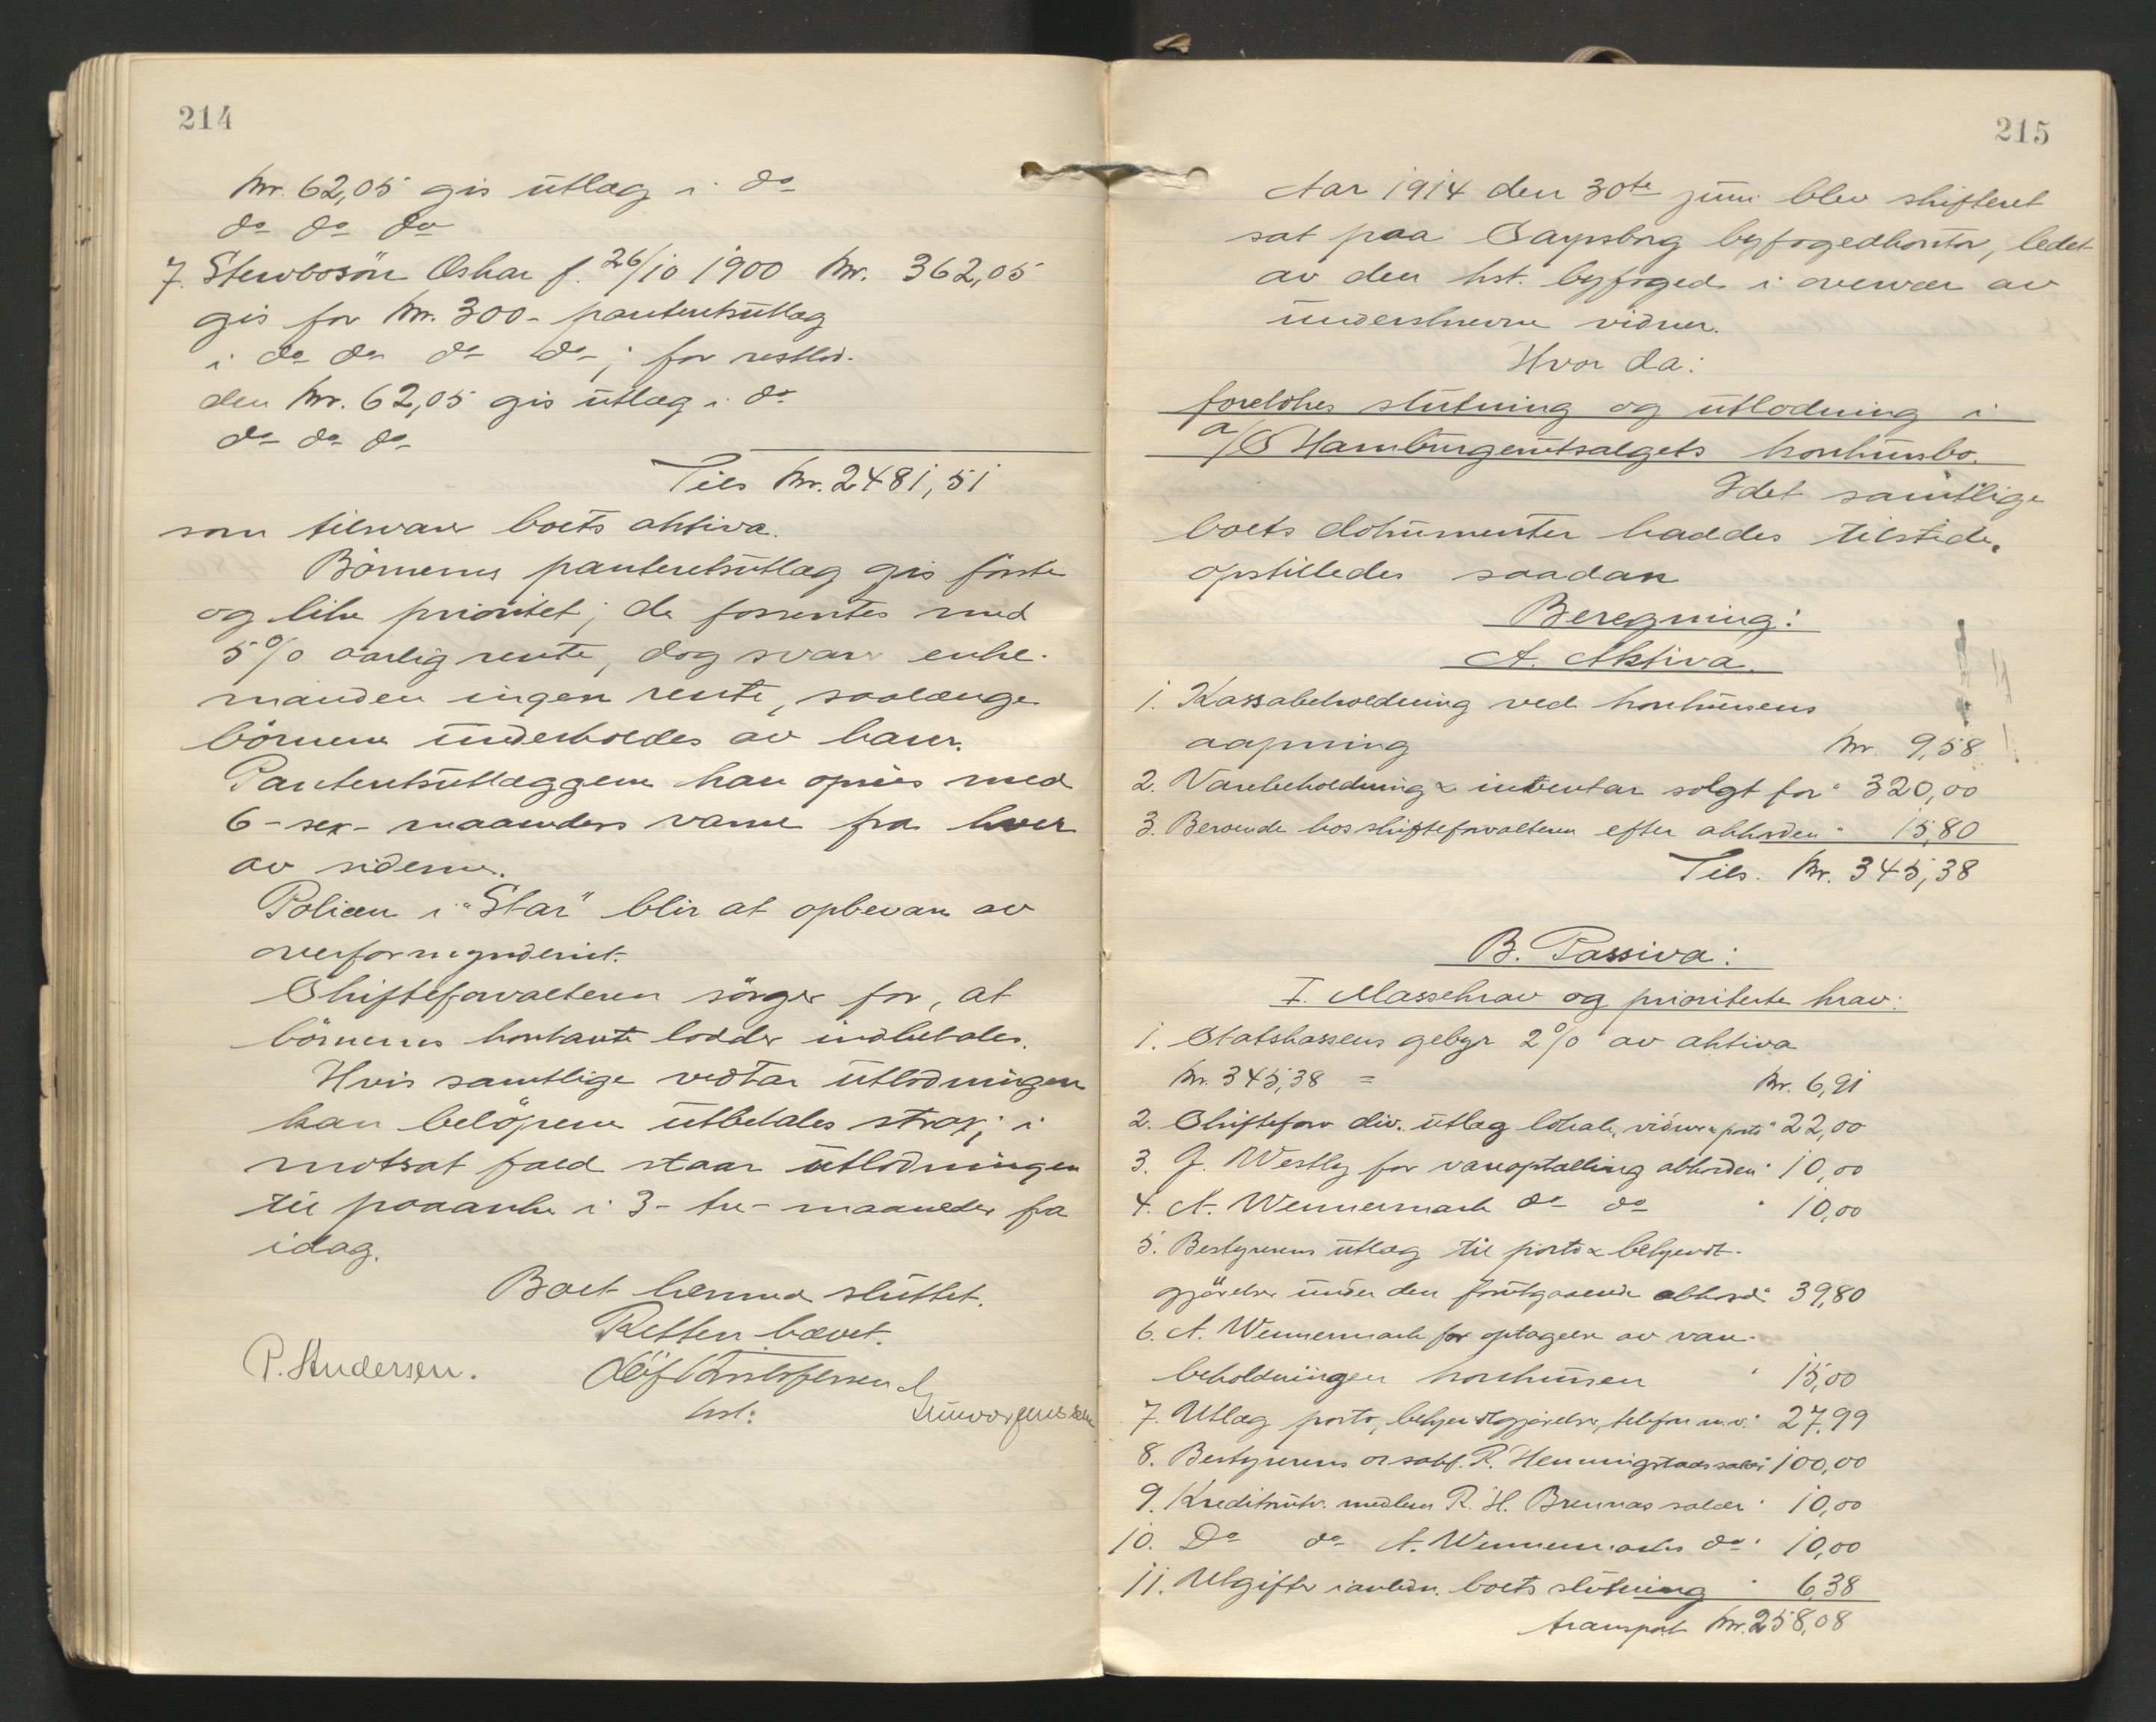 214
kr. 62,05 gis utlæg i do
do do do
7. Stervbosön Oskar f. 26/10 1900 kr. 362,05
gis for kr. 300- panteretsutlæg
i do do do do; for restlod-
den kr. 62,05 gis utlæg i do
do do do
Tils kr. 2481,51
som tilsvarer boets aktiva.
Börnenes panteretsutlæg gis förste
og like prioritet; de forrentes med
5% aarlig rente, dog svarer enke-
manden ingen rente, saalænge
börnene underholdes av ham.
Panteretsutlæggene kan opsies med
6-sex- maaneders varsel fra hver
av siderne.
Policen i "Star" blir at opbevare av
overformynderiet.
Skifteforvalteren sörger for, at
börnenes kontante lodder indbetales.
Hvis samtlige vedtar utlodningen
kan belöpene utbetales strax; i
motsat fald staar utlodningen
til paaanke i 3- tre- maaneder fra
idag.
Boet hermed sluttet.
Retten hævet.
P. Andersen.
hst:
215
Aar 1914 den 30te juni blev skifteret
sat paa Sarpsborg byfogedkontor, ledet
av den kst. byfoged i overvær av
underskrevne vidner.
Hvor da:
foretokes slutning og utlodning i
a/S Hamburgerutsalgets konkursbo.
Idet samtlige
boets dokumenter haddes tilstede,
opstilledes saadan
Beregning:
A. Aktiva.
1. Kassabeholdning ved konkursens
aapning kr. 9,58
2. Varebeholdning & inventar solgt for " 320,00
3. Beroende hos skifteforvalteren efter akkorden " 15,80
Tils. kr. 345,38
B. Passiva:
I. Massekrav og prioriterte krav:
1. Statskassens gebyr 2% av aktiva
kr. 345,38 = kr. 6,91
2. Skifteforv div. utlæg lokale, vidner & porto " 22,00
3. J. Westly for vareoptælling akkorden " 10,00
4. A. Wennermark do do " 10,00
5. Bestyrerens utlæg til porto & bekjendt-
gjörelser under den forutgaaende akkord " 39,80
6. A. Wennermark for optagelse av vare-
beholdningen konkursen " 15,00
7. Utlæg porto, bekjendtgjörelser, telefon m.v. " 27,99
8. Bestyrerens o.r.sakf. R. Henningstads salær " 100,00
9. Kreditorutv. medlem R. H. Brennas salær " 10,00
10. Do do A. Wennermarks do " 10,00
11. Utgifter i anledn. boets slutning " 6,38
transport kr. 258,08